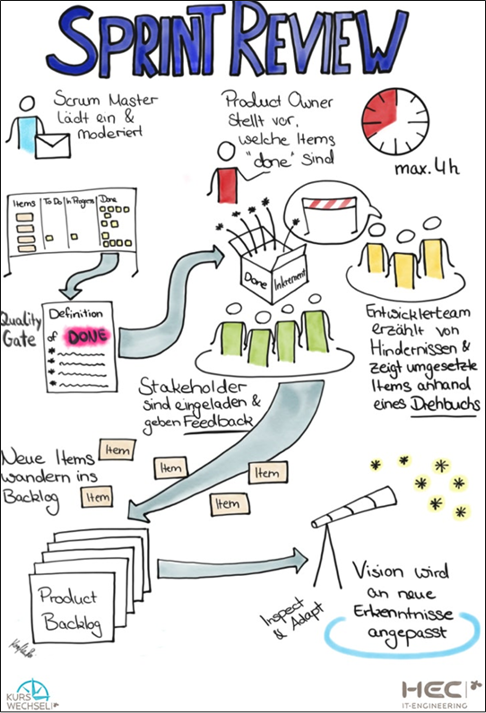 SPRINT REVIEW
Scrum Master
lädt ein &
moderiert
Product Owner
stellt vor,
welche Items
"done" sind
max. 4h
Items To Do In Progress Done
Quality
Gate
Definition
of DONE
Done Inkrement
Entwicklerteam
erzählt von
Hindernissen &
zeigt umgesetzte
Items anhand
eines Drehbuchs
Stakeholder
sind eingeladen &
geben Feedback
Neue Items
wandern ins
Backlog
Item
Item
Item
Item
Item
Product
Backlog
Inspect
& Adapt
Vision wird
an neue
Erkenntnisse
angepasst
KURS
WECHSEL
HEC
IT-ENGINEERING